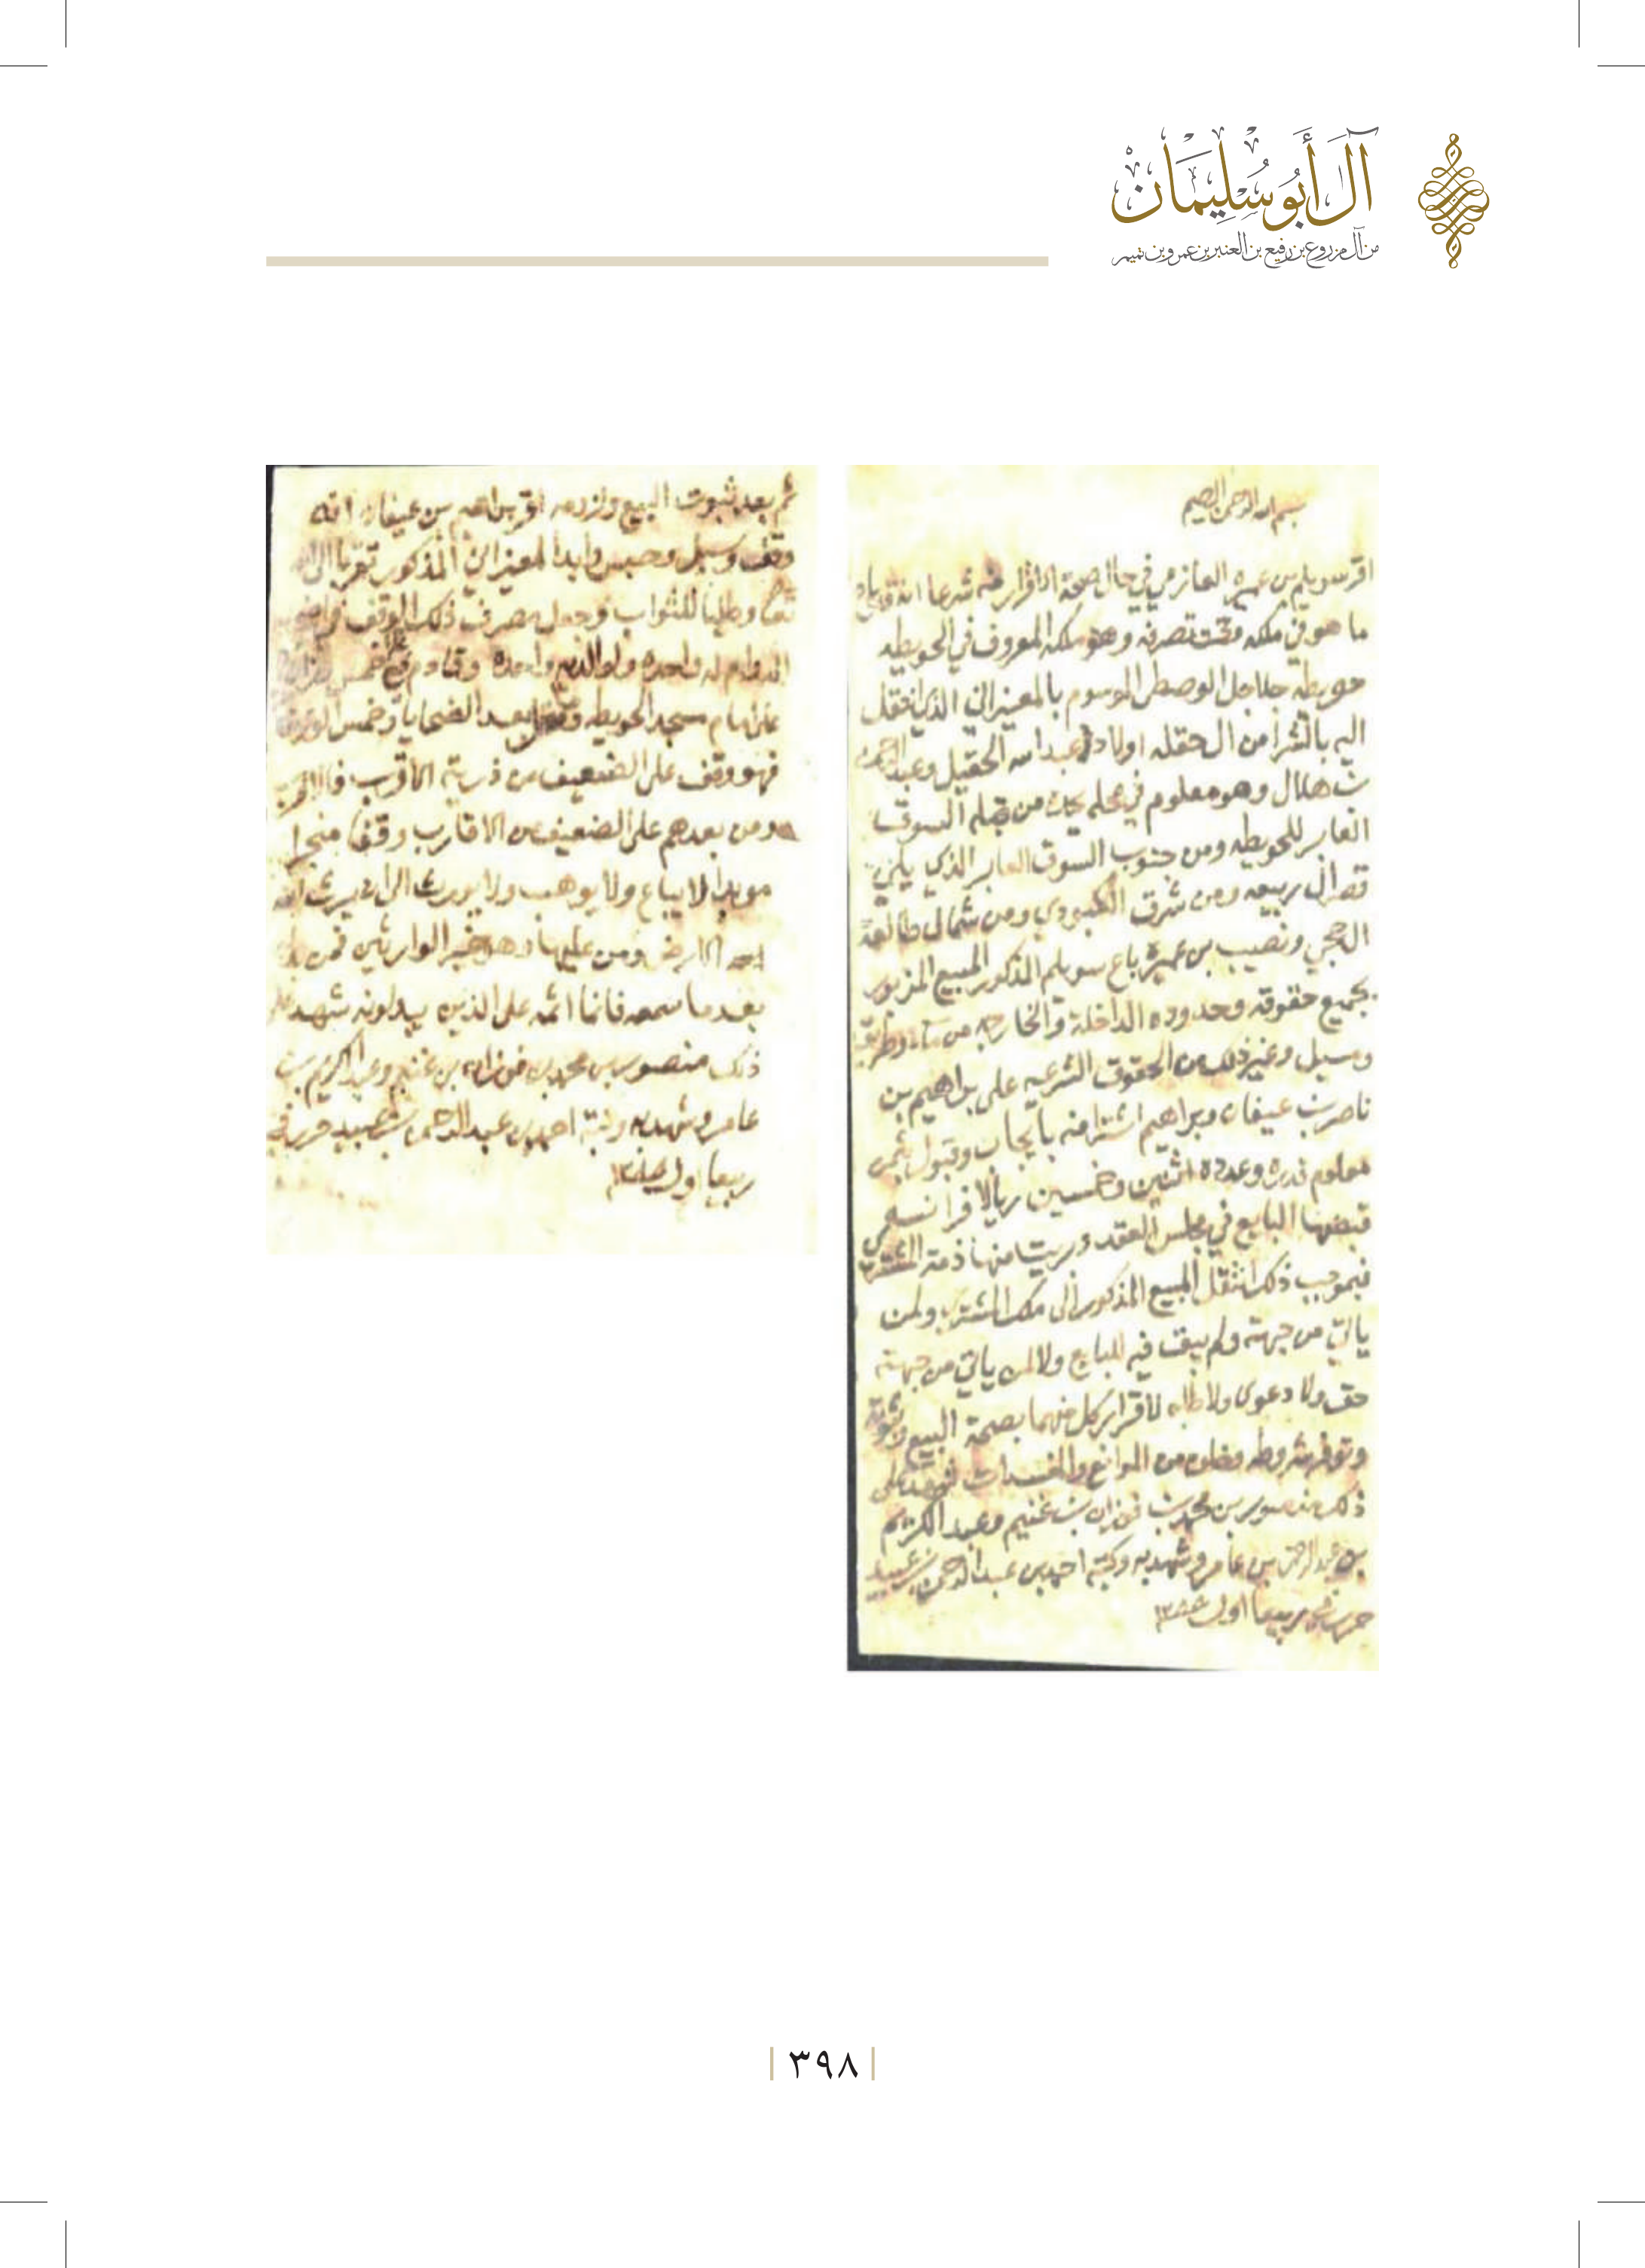 آل أَبُو سُلِيمَان
من آل مزروع بن رفيع بن العنبر بن عمرو بن تميم
بسم الله الرحمن الرحيم
اقر سويلم بن عميره العازمي في حال صحة الاقرار منه شرعا انه قد باع
ما هو في ملكه وتحت تصرفه وهو ملكه المعروف في الحويطه
حويطة جلاجل الوسطى الموسوم بالمعيزاني الذي انتقل
اليه بالشرا من ال حقله اولاد عبد الله الحقيل وعبد الرحمن
بن هلال وهو معلوم في محله يحده من قبله السوق
العابر للحويطه ومن جنوب السوق العابر الذي يلي
ال ربيعه ومن شرق ومن شمال طالعة
ونصيب بن عميره باع سويلم المذكور المبيع المزبور
بجميع حقوقه وحدوده الداخلة والخارجه من وطريق
ومسيل وغير ذلك من الحقوق الشرعيه على براهيم بن
ناصر بن عيفان وبراهيم اشترا منه بايجاب وقبول بثمن
معلوم قدره وعدده اثنين وخمسين ريالا فرانسه
قبضها البايع في مجلس العقد وبريت منها ذمة المشتري
فبموجب ذلك انتقل المبيع المذكور الى ملك المشتري ولمن
ياتي من جهته ولم يبق فيه للبايع ولا لمن ياتي من جهته
حق ولا دعوى ولا طلبه لاقرار كل منهما بصحة البيع
وتوفر شروطه وخلوه من الموانع والمفسدات شهد على
ذلك منصور بن محمد بن فوزان بن غنيم وعبد الكريم
بن عبد الرحمن بن عامر وشهد به وكتبه احمد بن عبد الرحمن بن عبيد
حرر في ربيعا اول
ثم بعد ثبوت البيع ولزومه اقر براهيم بن عيفان انه
وقف وسبل وحبس وابدا المعيزاني المذكور تقربا الى الله
تعالى وطلبا للثواب وجعل مصرف ذلك الوقف في
له واحده ولوالديه واحده خمس
على امام مسجد الحويطه بعد الضحايا وخمس الوقف
فهو وقف على الضعيف من ذريته الاقرب فالاقرب
ومن بعدهم على الضعيف من الاقارب وقفا منجزا
موبدا لا يباع ولا يوهب ولا يورث الى ان يرث الله
الارض ومن عليها وهو خير الوارثين فمن بدله
بعد ما سمعه فانما اثمه على الذين يبدلونه شهد على
ذلك منصور بن محمد بن فوزان بن غنيم وعبد الكريم بن
عامر وشهد به وكتبه احمد بن عبد الرحمن بن عبيد حرر في
ربيعا اول
٣٩٨